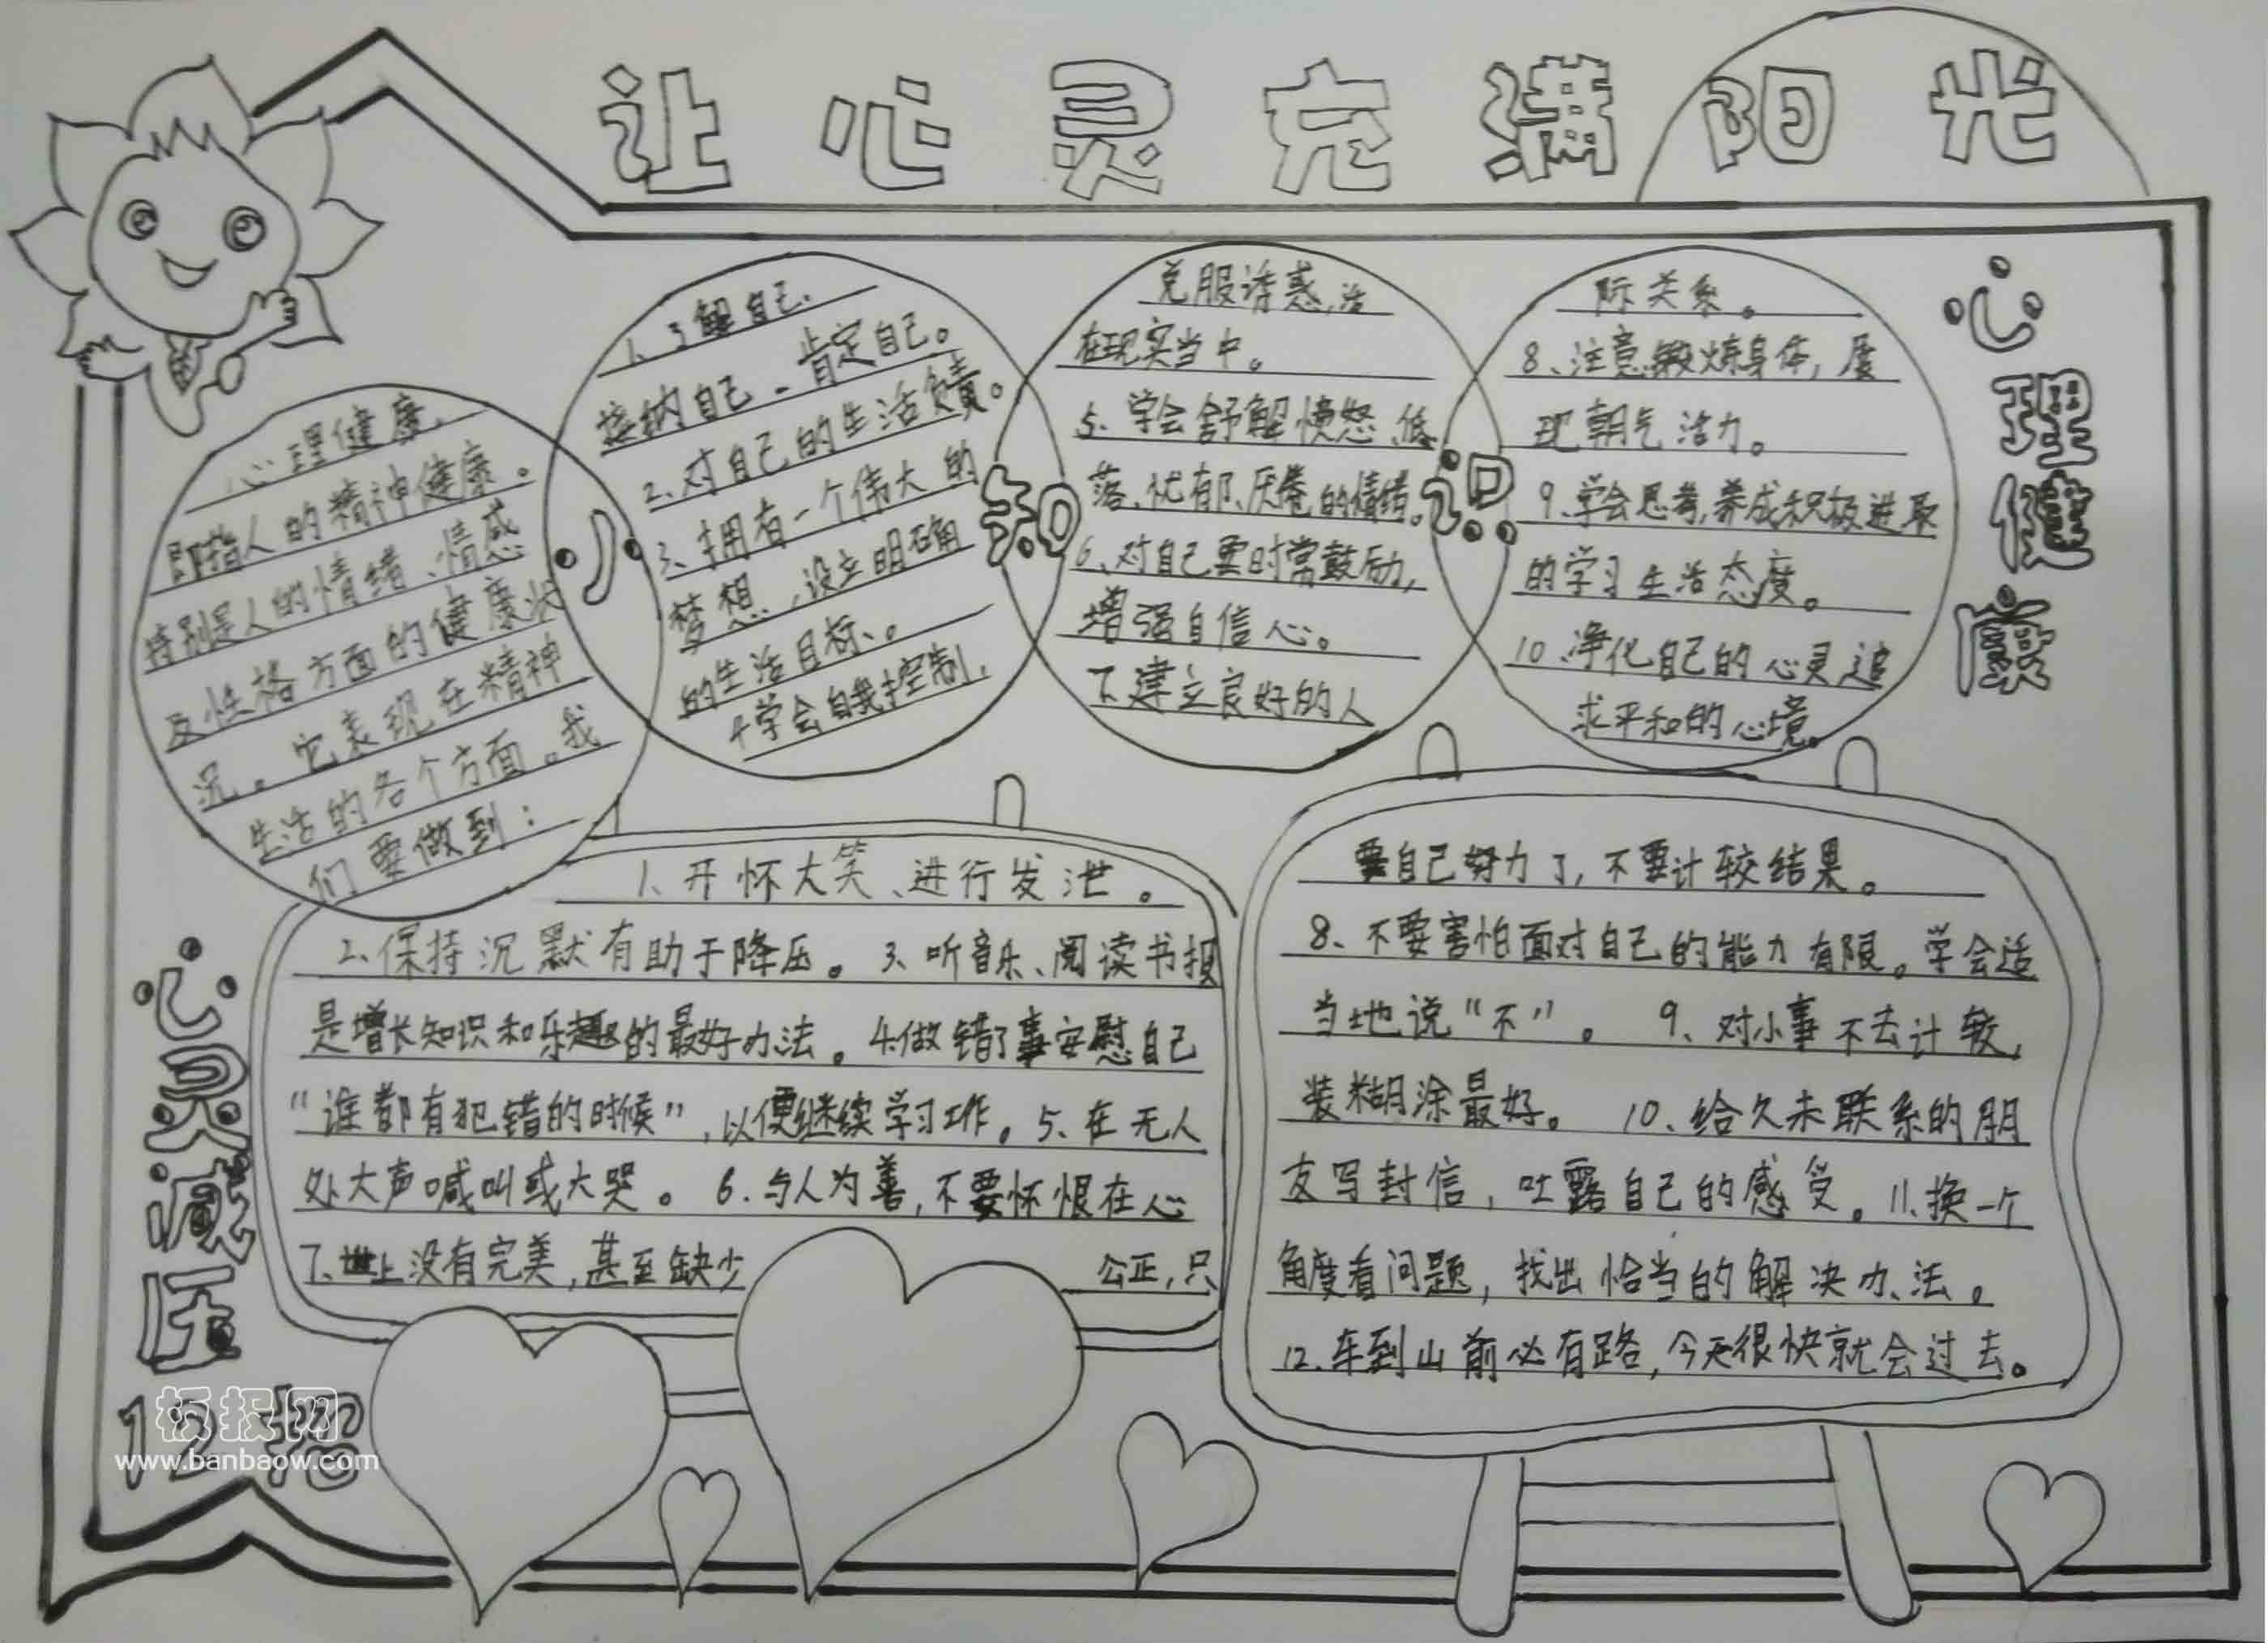 让心灵充满阳光
心理健康
小知识
心理健康,
即指人的精神健康。
特别是人的情绪、情感
及性格方面的健康状
况。它表现在精神
生活的各个方面。我
们要做到：
1、了解自己、
接纳自己、肯定自己。
2、对自己的生活负责。
3、拥有一个伟大的
梦想,设立明确
的生活目标、。
4学会自我控制,
克服诱惑,活
在现实当中。
5、学会舒解愤怒、低
落、忧郁、厌倦的情绪。
6、对自己要时常鼓励,
增强自信心。
7、建立良好的人
际关系。
8、注意锻炼身体,展
现朝气活力。
9、学会思考,养成积极进取
的学习生活态度。
10、净化自己的心灵追
求平和的心境。
心灵减压
12招
1、开怀大笑、进行发泄。
2、保持沉默有助于降压。3、听音乐、阅读书报
是增长知识和乐趣的最好办法。4.做错了事安慰自己
“谁都有犯错的时候”,以便继续学习工作。5、在无人
处大声喊叫或大哭。6、与人为善,不要怀恨在心
7、世上没有完美,甚至缺少公正,只
要自己努力了,不要计较结果。
8、不要害怕面对自己的能力有限。学会适
当地说“不”。9、对小事不去计较,
装糊涂最好。10、给久未联系的朋
友写封信,吐露自己的感受。11、换一个
角度看问题,找出恰当的解决办法。
12、车到山前必有路,今天很快就会过去。
板报网
www.banbaow.com